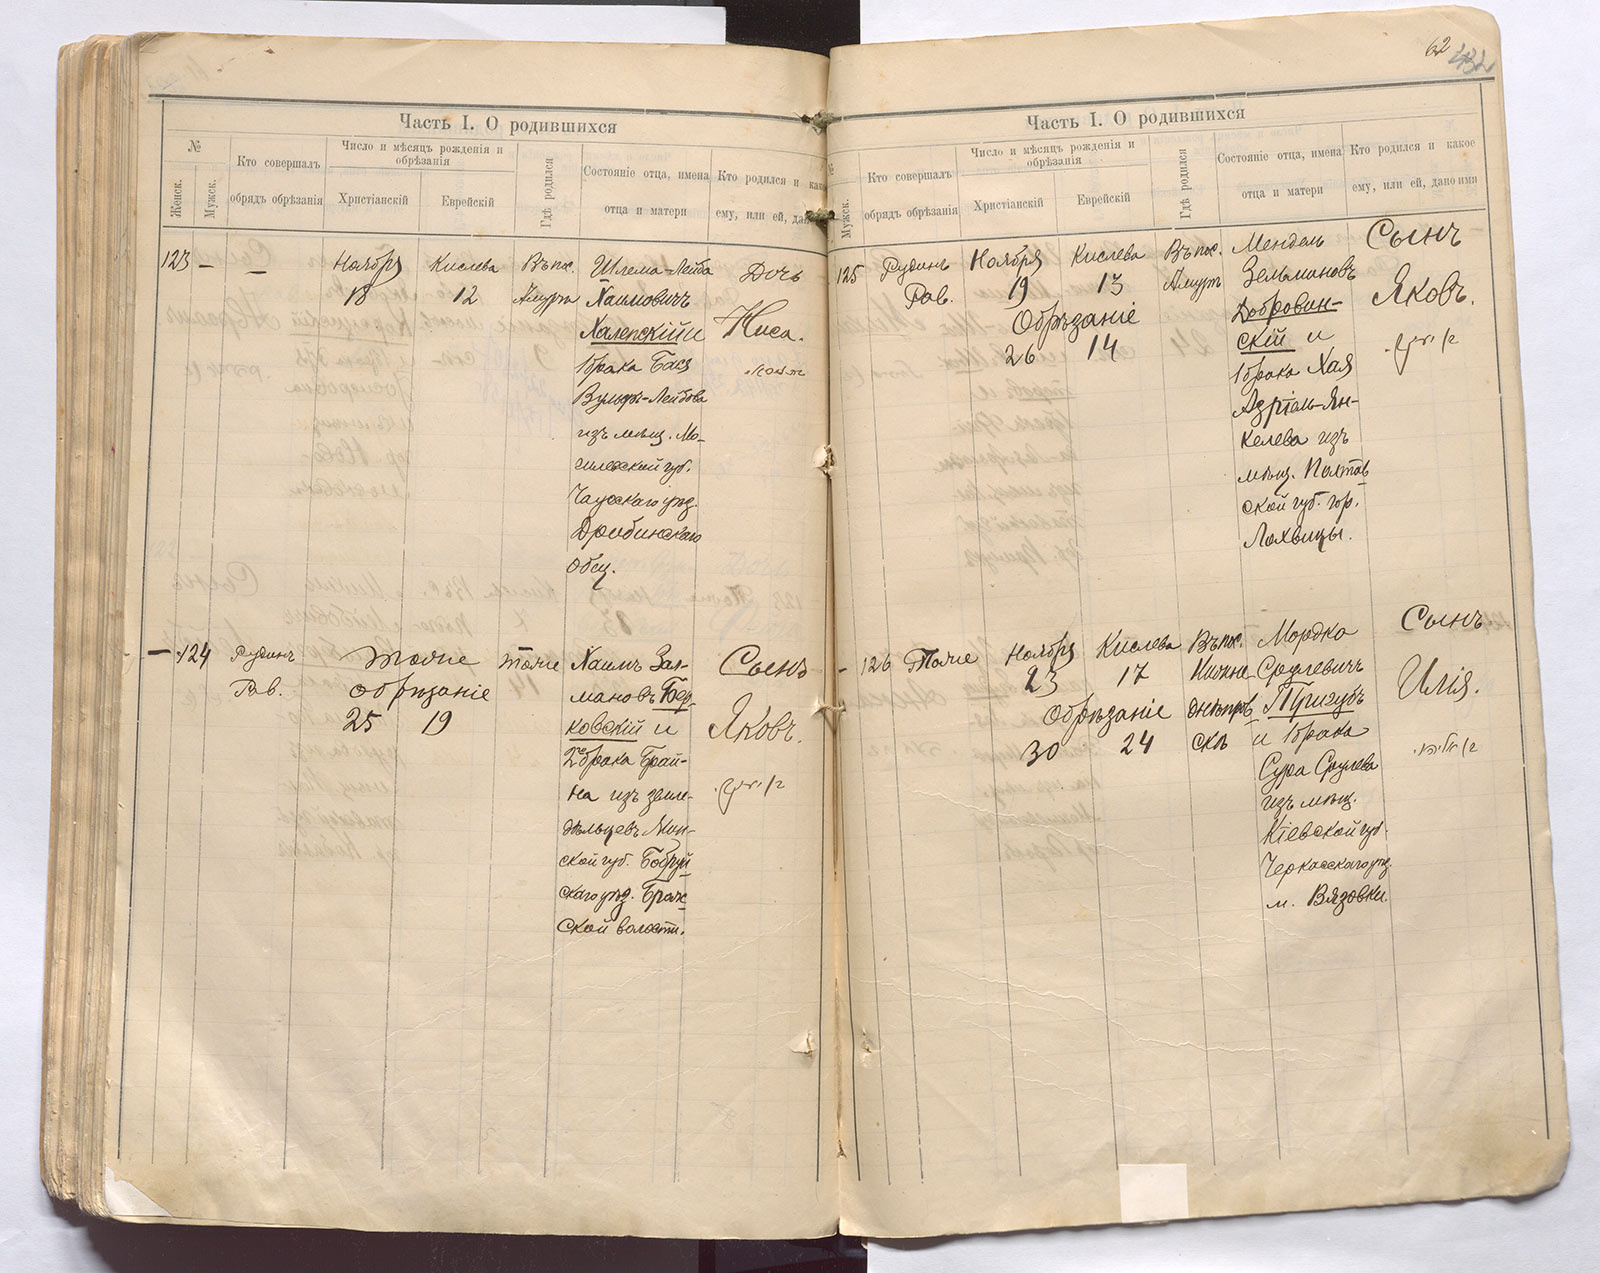 Часть I. О родившихся
№
Женск.
Мужск.
Кто совершалъ
обрядъ обрѣзанія
Число и мѣсяцъ рожденія и
обрѣзанія
Христіанскій
Еврейскій
Гдѣ родился
Состояніе отца, имена
отца и матери
Кто родился и како
ему, или ей, дан
123 – –
Ноября
18
Кислева
12
Въ пос.
Амуръ
Шлема-Лейба
Хаимовичъ
Халепскій и
1 брака Бася
Вульфъ-Лейбова
изъ мѣщ. Мо-
гилевской губ.
Чаусскаго уѣз.
Дрибинскаго
общ.
Дочь
Ниса.
– 124
Рудинъ
Рав.
тоже
обрѣзаніе
25 19
тоже
Хаимъ Зал-
мановъ Бер-
ковскій и
2го брака Брай-
на изъ земле-
дѣльцевъ Мин-
ской губ. Бобруй
скаго уѣз.
ской волости.
Сынъ
Яковъ.
62
432
Часть I. О родившихся
№
Мужск.
Кто совершалъ
обрядъ обрѣзанія
Число и мѣсяцъ рожденія и
обрѣзанія
Христіанскій
Еврейскій
Гдѣ родился
Состояніе отца, имена
отца и матери
Кто родился и какое
ему, или ей, дано имя
125
Рудинъ
Рав.
Ноября
19
Кислева
13
Обрѣзаніе
26 14
Въ пос.
Амуръ
Мендель
Зельмановъ
Добровин-
скій и
1 брака Хая
Азріель-Ян-
келева изъ
мѣщ. Полтав
ской губ. гор.
Лохвицы.
Сынъ
Яковъ.
– 126
Тоже
Ноября
23
Кислева
17
Обрѣзаніе
30 24
Въ пос.
Нижне
днѣпров
скѣ
Мордко
Сруглевичъ
Пригубъ
и 1 брака
Сура Срулева
изъ мѣщ.
Кіевской губ.
Черкасскаго уѣз.
м. Вязовки.
Сынъ
Илія.